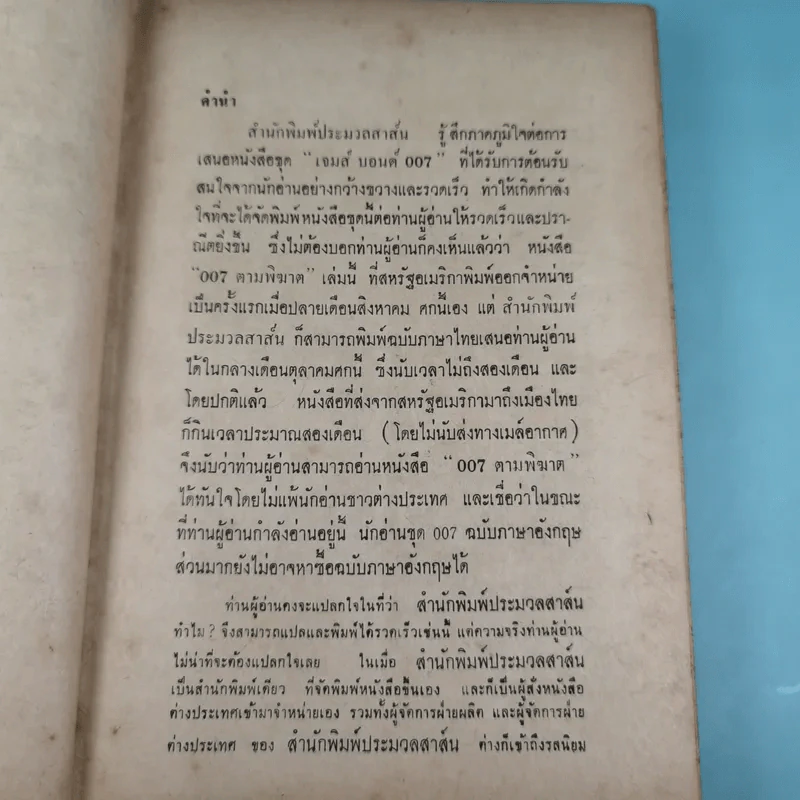 คำนำ
สำนักพิมพ์ประมวลสาส์น รู้สึกภาคภูมิใจต่อการ
เสนอหนังสือชุด "เจมส์ บอนด์ 007" ที่ได้รับการต้อนรับ
สนใจจากนักอ่านอย่างกว้างขวางและรวดเร็ว ทำให้เกิดกำลัง
ใจที่จะได้จัดพิมพ์หนังสือชุดนี้ต่อท่านผู้อ่านให้รวดเร็วและปรา-
ณีตยิ่งขึ้น ซึ่งไม่ต้องบอกท่านผู้อ่านก็คงเห็นแล้วว่า หนังสือ
"007 ตามพิฆาต" เล่มนี้ ที่สหรัฐอเมริกาพิมพ์ออกจำหน่าย
เป็นครั้งแรกเมื่อปลายเดือนสิงหาคม ศกนี้เอง แต่ สำนักพิมพ์
ประมวลสาส์น ก็สามารถพิมพ์ฉบับภาษาไทยเสนอท่านผู้อ่าน
ได้ในกลางเดือนตุลาคมศกนี้ ซึ่งนับเวลาไม่ถึงสองเดือน และ
โดยปกติแล้ว หนังสือที่ส่งจากสหรัฐอเมริกามาถึงเมืองไทย
ก็กินเวลาประมาณสองเดือน (โดยไม่นับส่งทางเมล์อากาศ)
จึงนับว่าท่านผู้อ่านสามารถอ่านหนังสือ "007 ตามพิฆาต"
ได้ทันใจโดยไม่แพ้นักอ่านชาวต่างประเทศ และเชื่อว่าในขณะ
ที่ท่านผู้อ่านกำลังอ่านอยู่นี้ นักอ่านชุด 007 ฉบับภาษาอังกฤษ
ส่วนมากยังไม่อาจหาซื้อฉบับภาษาอังกฤษได้
ท่านผู้อ่านคงจะแปลกใจในที่ว่า สำนักพิมพ์ประมวลสาส์น
ทำไม? จึงสามารถแปลและพิมพ์ได้รวดเร็วเช่นนี้ แต่ความจริงท่านผู้อ่าน
ไม่น่าที่จะต้องแปลกใจเลย ในเมื่อ สำนักพิมพ์ประมวลสาส์น
เป็นสำนักพิมพ์เดียว ที่จัดพิมพ์หนังสือขึ้นเอง และก็เป็นผู้สั่งหนังสือ
ต่างประเทศเข้ามาจำหน่ายเอง รวมทั้งผู้จัดการฝ่ายผลิต และผู้จัดการฝ่าย
ต่างประเทศ ของ สำนักพิมพ์ประมวลสาส์น ต่างก็เข้าถึงรสนิยม